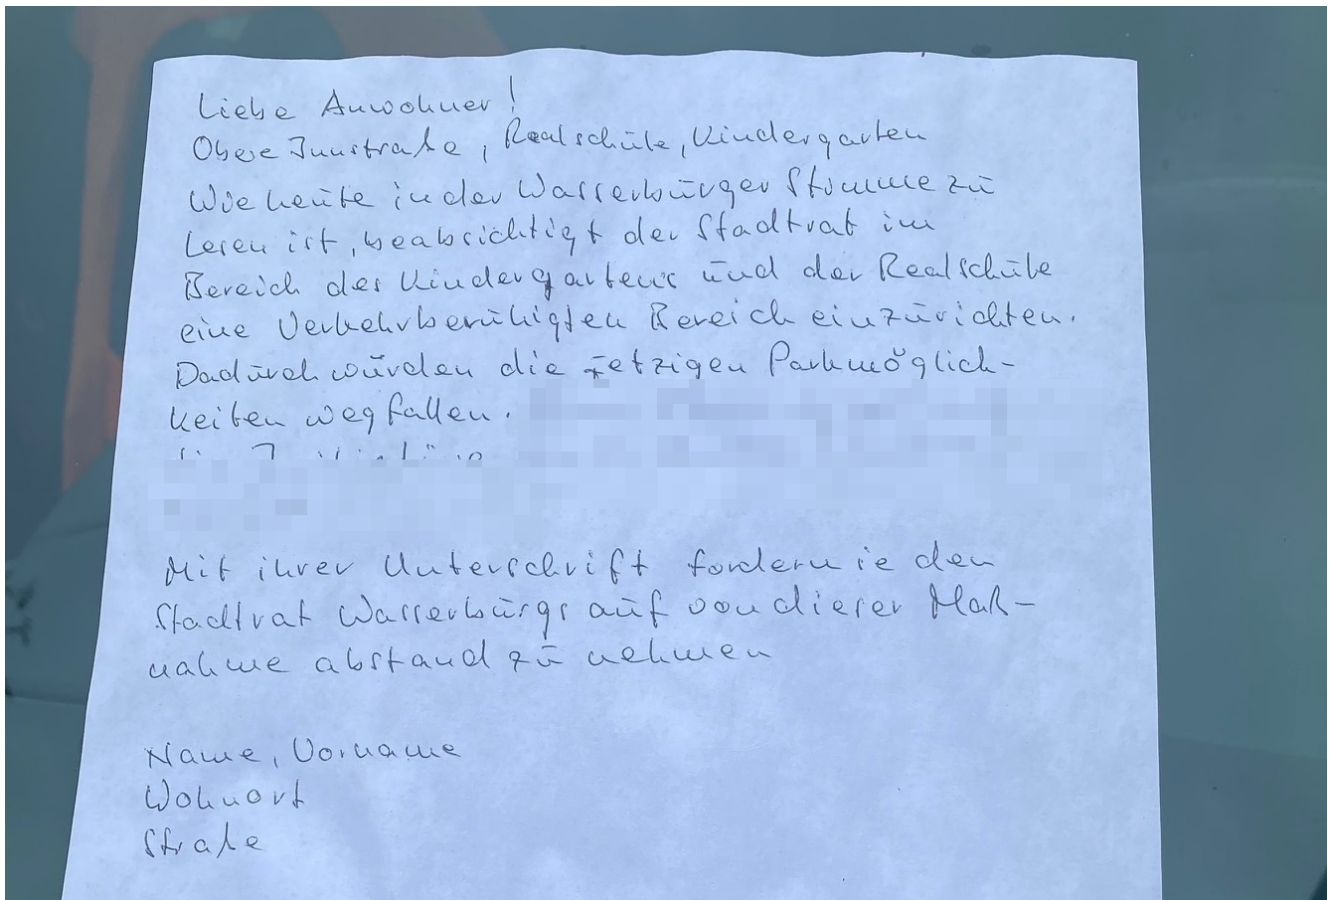 Liebe Anwohner!
Obere Innstraße, Realschule, Kindergarten
Wie heute in der Wasserburger Stimme zu
Lesen ist, beabsichtigt der Stadtrat im
Bereich des Kindergartens und der Realschule
eine Verkehrberuhigten Bereich einzurichten.
Dadurch würden die jetzigen Parkmöglich-
keiten wegfallen.
Mit ihrer Unterschrift fordern ie den
Stadtrat Wasserburgs auf von dieser Maß-
nahme abstand zu nehmen
Name, Vorname
Wohnort
Straße